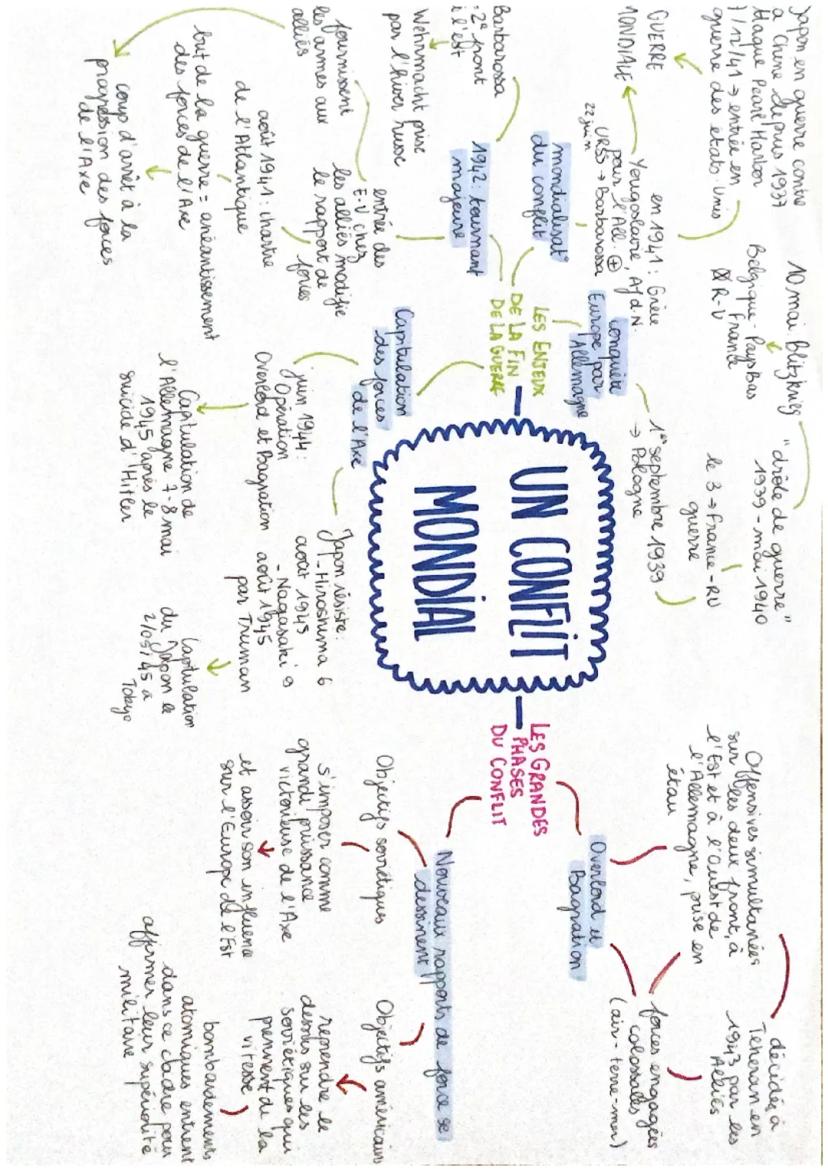 UN CONFLIT
MONDIAL
LES ENJEUX
DE LA FIN
DE LA GUERRE
conquête
Europe par
Allemagne
1er septembre 1939
→ Pologne
le 3 → France-RU
guerre
"drôle de guerre"
1939 - mai 1940
10 mai Blitzkrieg
Belgique-Pays Bas
France
R-U
mondialisat°
du conflit
en 1941 : Grèce
Yougoslavie, Af d N.
pour l'All. ⊕
URSS → Barbarossa
22 juin
Japon en guerre contre
a Chine depuis 1937
ttaque Pearl Harbor
7/12/41 → entrée en
guerre des états-Unis
GUERRE
MONDIALE
1942 : tournant
majeure
Barbarossa
: 2e front
à l'est
Wehrmacht prise
par l'hiver russe
entrée des
E-U chez
les alliés modifie
le rapport de
forces
fournissent
les armes aux
alliés
août 1941 : chartre
de l'Atlantique
but de la guerre = anéantissement
des forces de l'Axe
coup d'arrêt à la
progression des forces
de l'Axe
Capitulation
des forces
de l'Axe
juin 1944 :
Opération
Overlord et Bagration
Capitulation de
l'Allemagne 7-8 mai
1945 après le
suicide d'Hitler
Japon résiste :
- Hiroshima 6
août 1945
- Nagasaki 9
août 1945
par Truman
Capitulation
du Japon le
2/09/45 à
Tokyo
LES GRANDES
PHASES
DU CONFLIT
Overlord et
Bagration
Offensives simultanées
sur les deux front, à
l'Est et à l'Ouest de
l'Allemagne, prise en
étau
décidés à
Téhéran en
1943 par les
Alliés
forces engagées
colossales
(air-terre-mer)
Nouveaux rapports de force se
dessinent
Objectifs soviétiques
s'imposer comme
grande puissance
victorieuse de l'Axe
et assoir son influence
sur l'Europe de l'Est
Objectifs américains
reprendre le
dessus sur les
soviétiques qui
prennent de la
vitesse
bombardements
atomiques entrent
dans ce cadre pour
affirmer leur supériorité
militaire